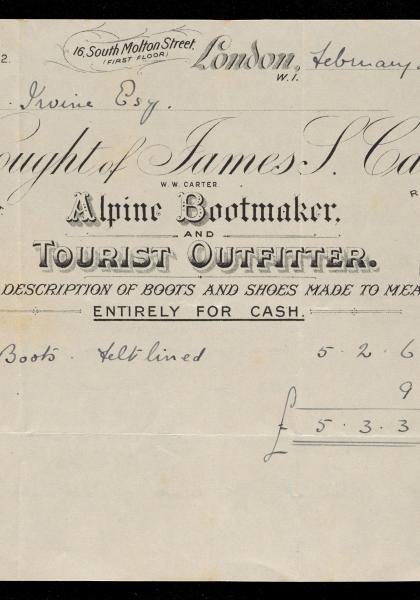 2.
16, South Molton Street,
(FIRST FLOOR)
London,
W.1.
February
Irvine Esq.
ought of James S. Ca
W. W. CARTER.
R
Alpine Bootmaker,
AND
TOURIST OUTFITTER.
DESCRIPTION OF BOOTS AND SHOES MADE TO MEA
ENTIRELY FOR CASH.
Boots. felt lined 5 . 2 . 6
9
£ 5 . 3 . 3